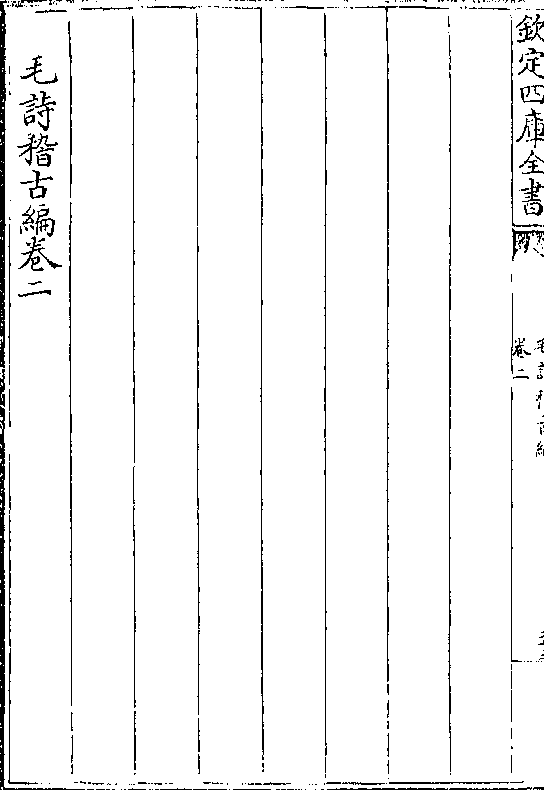 欽定四庫全書
毛詩稽古編
卷二
毛詩稽古編卷二